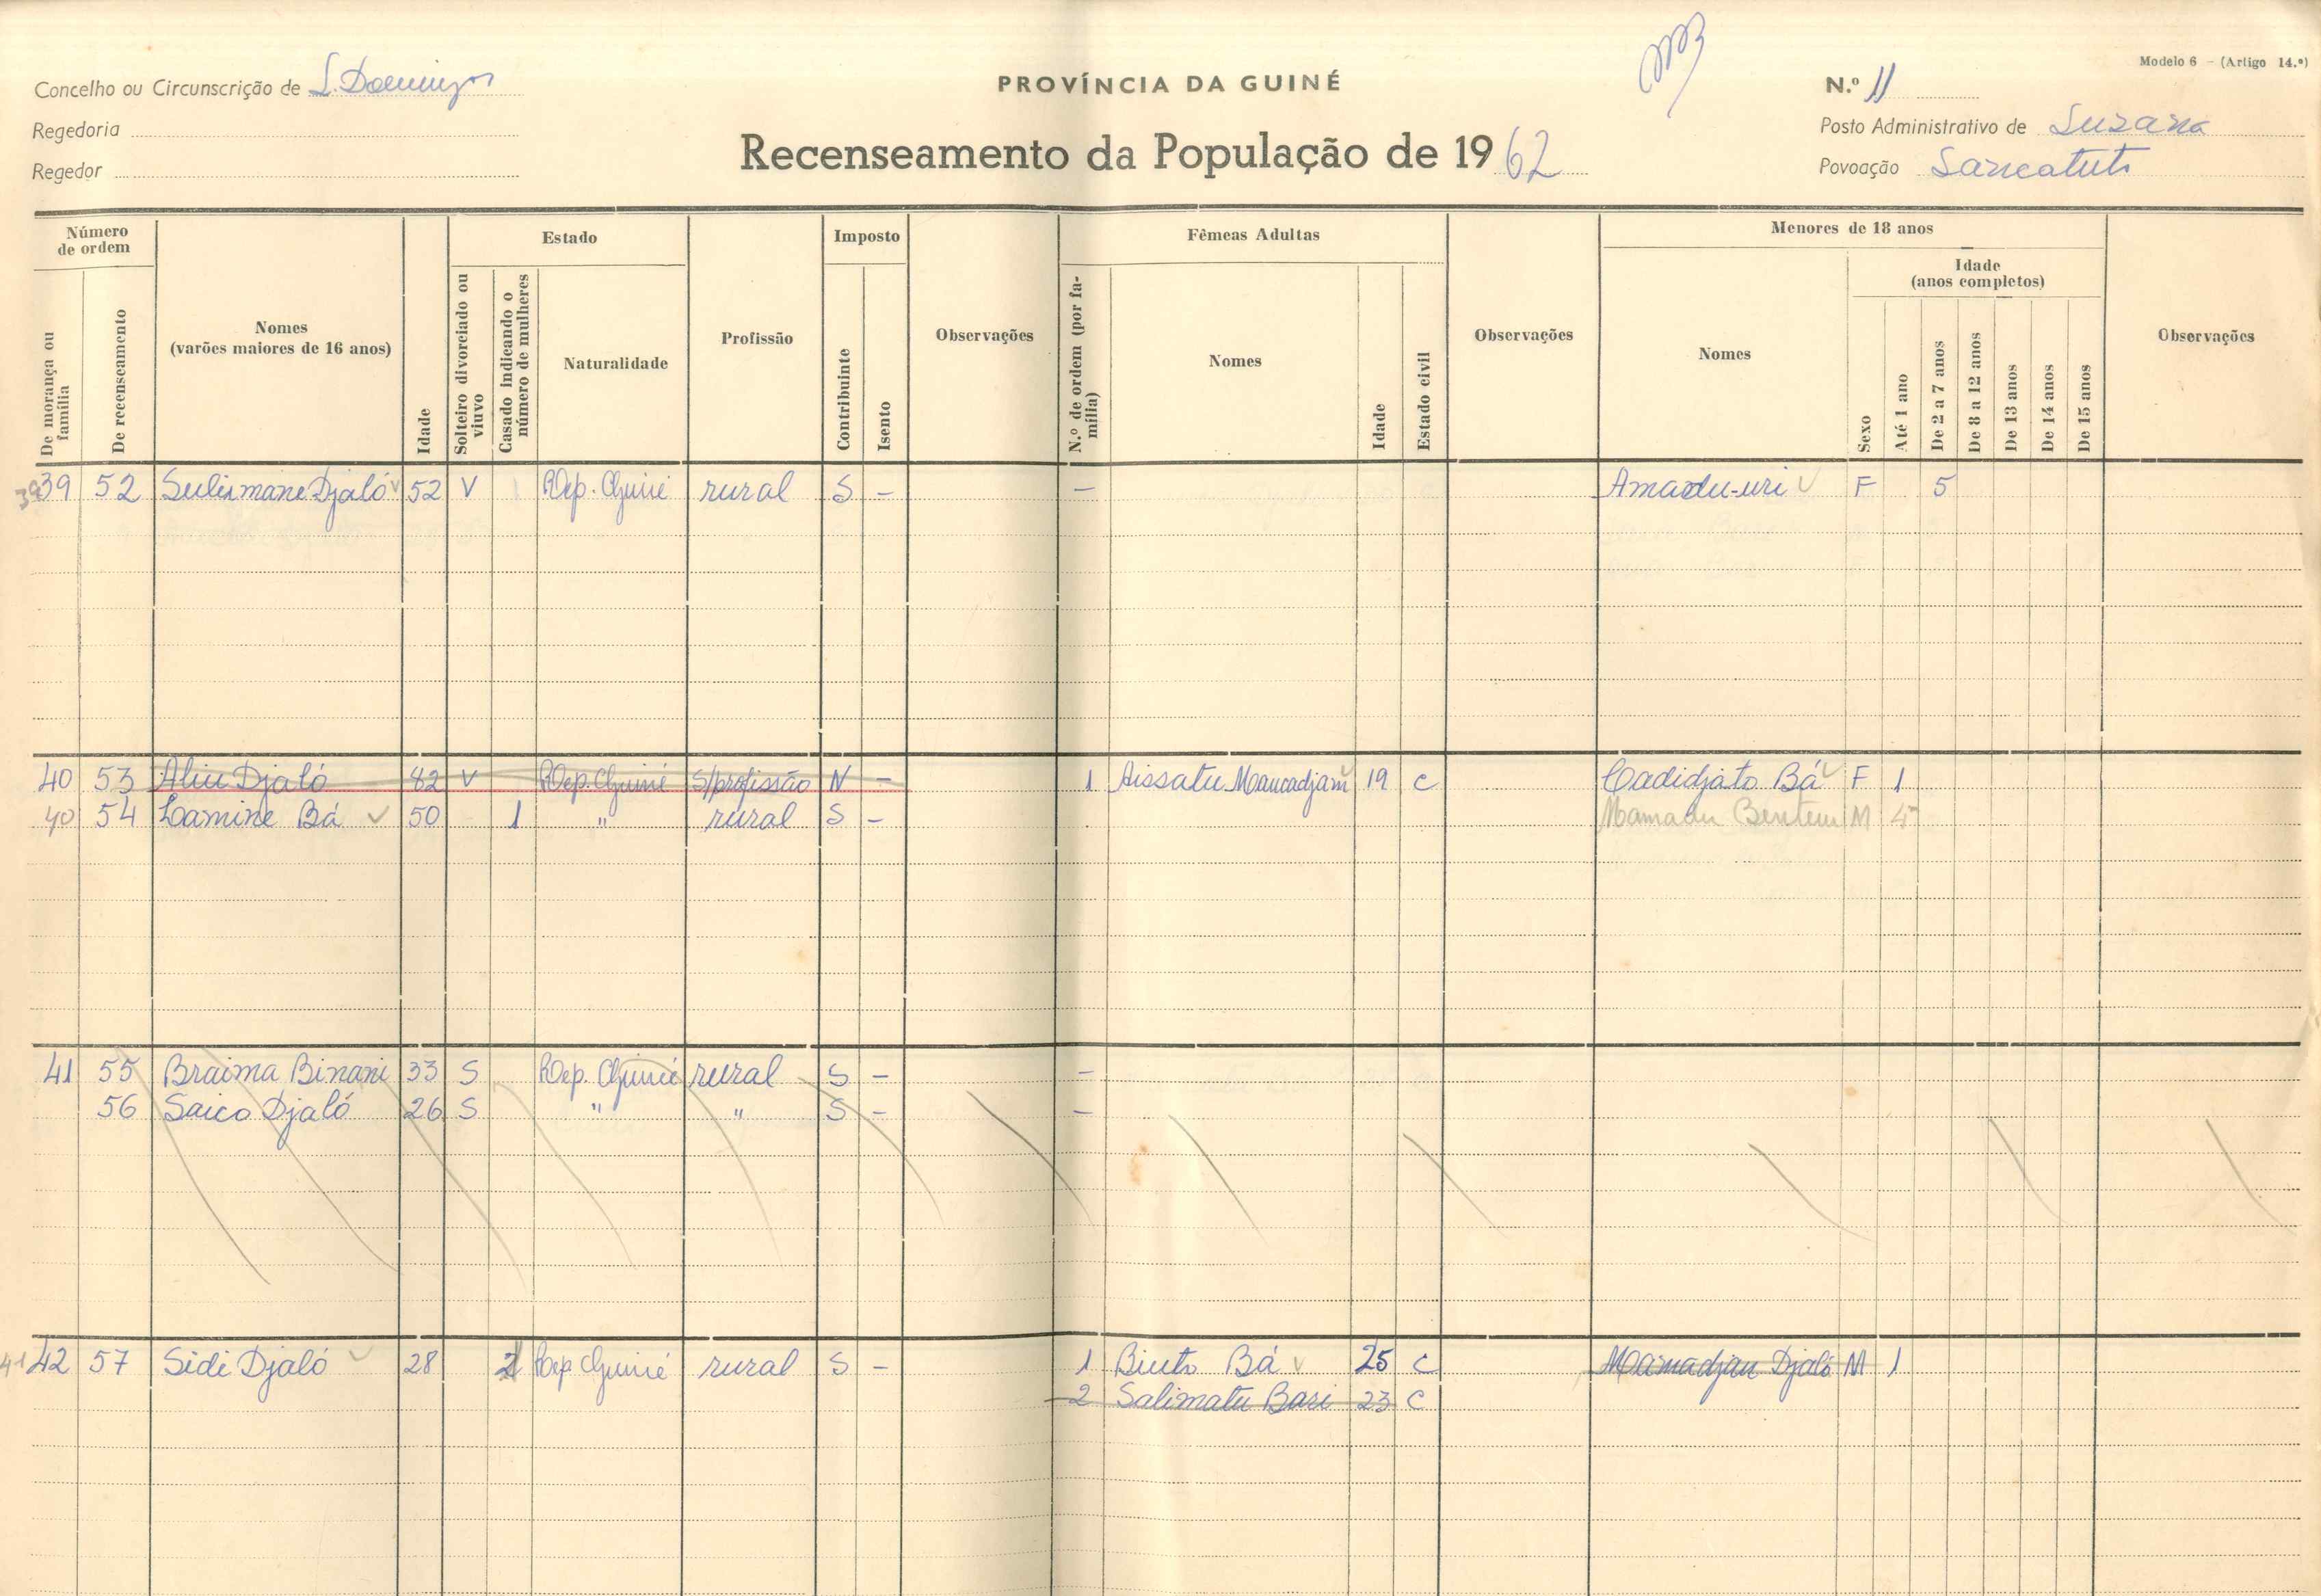 Modelo 6 - (Artigo 14.º)
Concelho ou Circunscrição de S. Domingos
PROVÍNCIA DA GUINÉ
N.º 11
Regedoria
Posto Administrativo de Suzana
Recenseamento da População de 1962
Regedor
Povoação
Número de ordem
De morança ou família
De recenseamento
Nomes
(varões maiores de 16 anos)
Idade
Estado
Solteiro divorciado ou viuvo
Casado indicando o número de mulheres
Naturalidade
Profissão
Imposto
Contribuinte
Isento
Observações
Fêmeas Adultas
N.º de ordem (por família)
Nomes
Idade
Estado civil
Observações
Menores de 18 anos
Nomes
Idade
(anos completos)
Sexo
Até 1 ano
De 2 a 7 anos
De 8 a 12 anos
De 13 anos
De 14 anos
De 15 anos
Observações
39 39 52 Suleimane Djaló 52 V Rep. Guiné rural S - - Amadu-uri F 5
40 53 Aliu Djaló 82 V Rep. Guiné S/profissão N - 1 Aissatu 19 C Cadidjato Bá F 1
40 54 Lamine Bá 50 1 " rural S - Mamadu M
41 55 Braima Binani 33 S Rep. Guiné rural S - -
56 Saico Djaló 26 S " " S - -
41 42 57 Sidi Djaló 28 Rep Guiné rural S - 1 Binto Bá 25 C Mamadjan Djaló M 1
2 Salimatu Bari 23 C